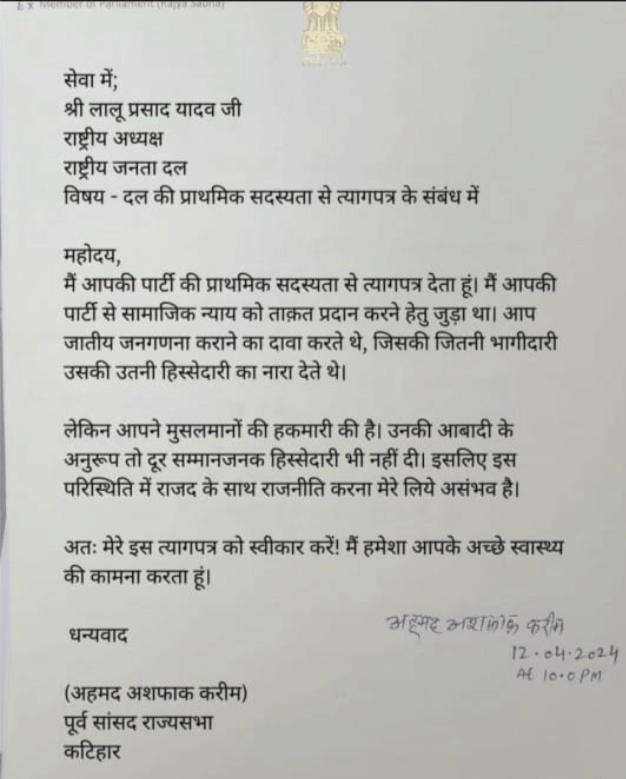 Ex Member of Parliament (Rajya Sabha)
सेवा में;
श्री लालू प्रसाद यादव जी
राष्ट्रीय अध्यक्ष
राष्ट्रीय जनता दल
विषय - दल की प्राथमिक सदस्यता से त्यागपत्र के संबंध में
महोदय,
मैं आपकी पार्टी की प्राथमिक सदस्यता से त्यागपत्र देता हूं। मैं आपकी
पार्टी से सामाजिक न्याय को ताक़त प्रदान करने हेतु जुड़ा था। आप
जातीय जनगणना कराने का दावा करते थे, जिसकी जितनी भागीदारी
उसकी उतनी हिस्सेदारी का नारा देते थे।
लेकिन आपने मुसलमानों की हकमारी की है। उनकी आबादी के
अनुरूप तो दूर सम्मानजनक हिस्सेदारी भी नहीं दी। इसलिए इस
परिस्थिति में राजद के साथ राजनीति करना मेरे लिये असंभव है।
अतः मेरे इस त्यागपत्र को स्वीकार करें! मैं हमेशा आपके अच्छे स्वास्थ्य
की कामना करता हूं।
धन्यवाद
अहमद अशफाक करीम
12.04.2024
At 10.0 PM
(अहमद अशफाक करीम)
पूर्व सांसद राज्यसभा
कटिहार